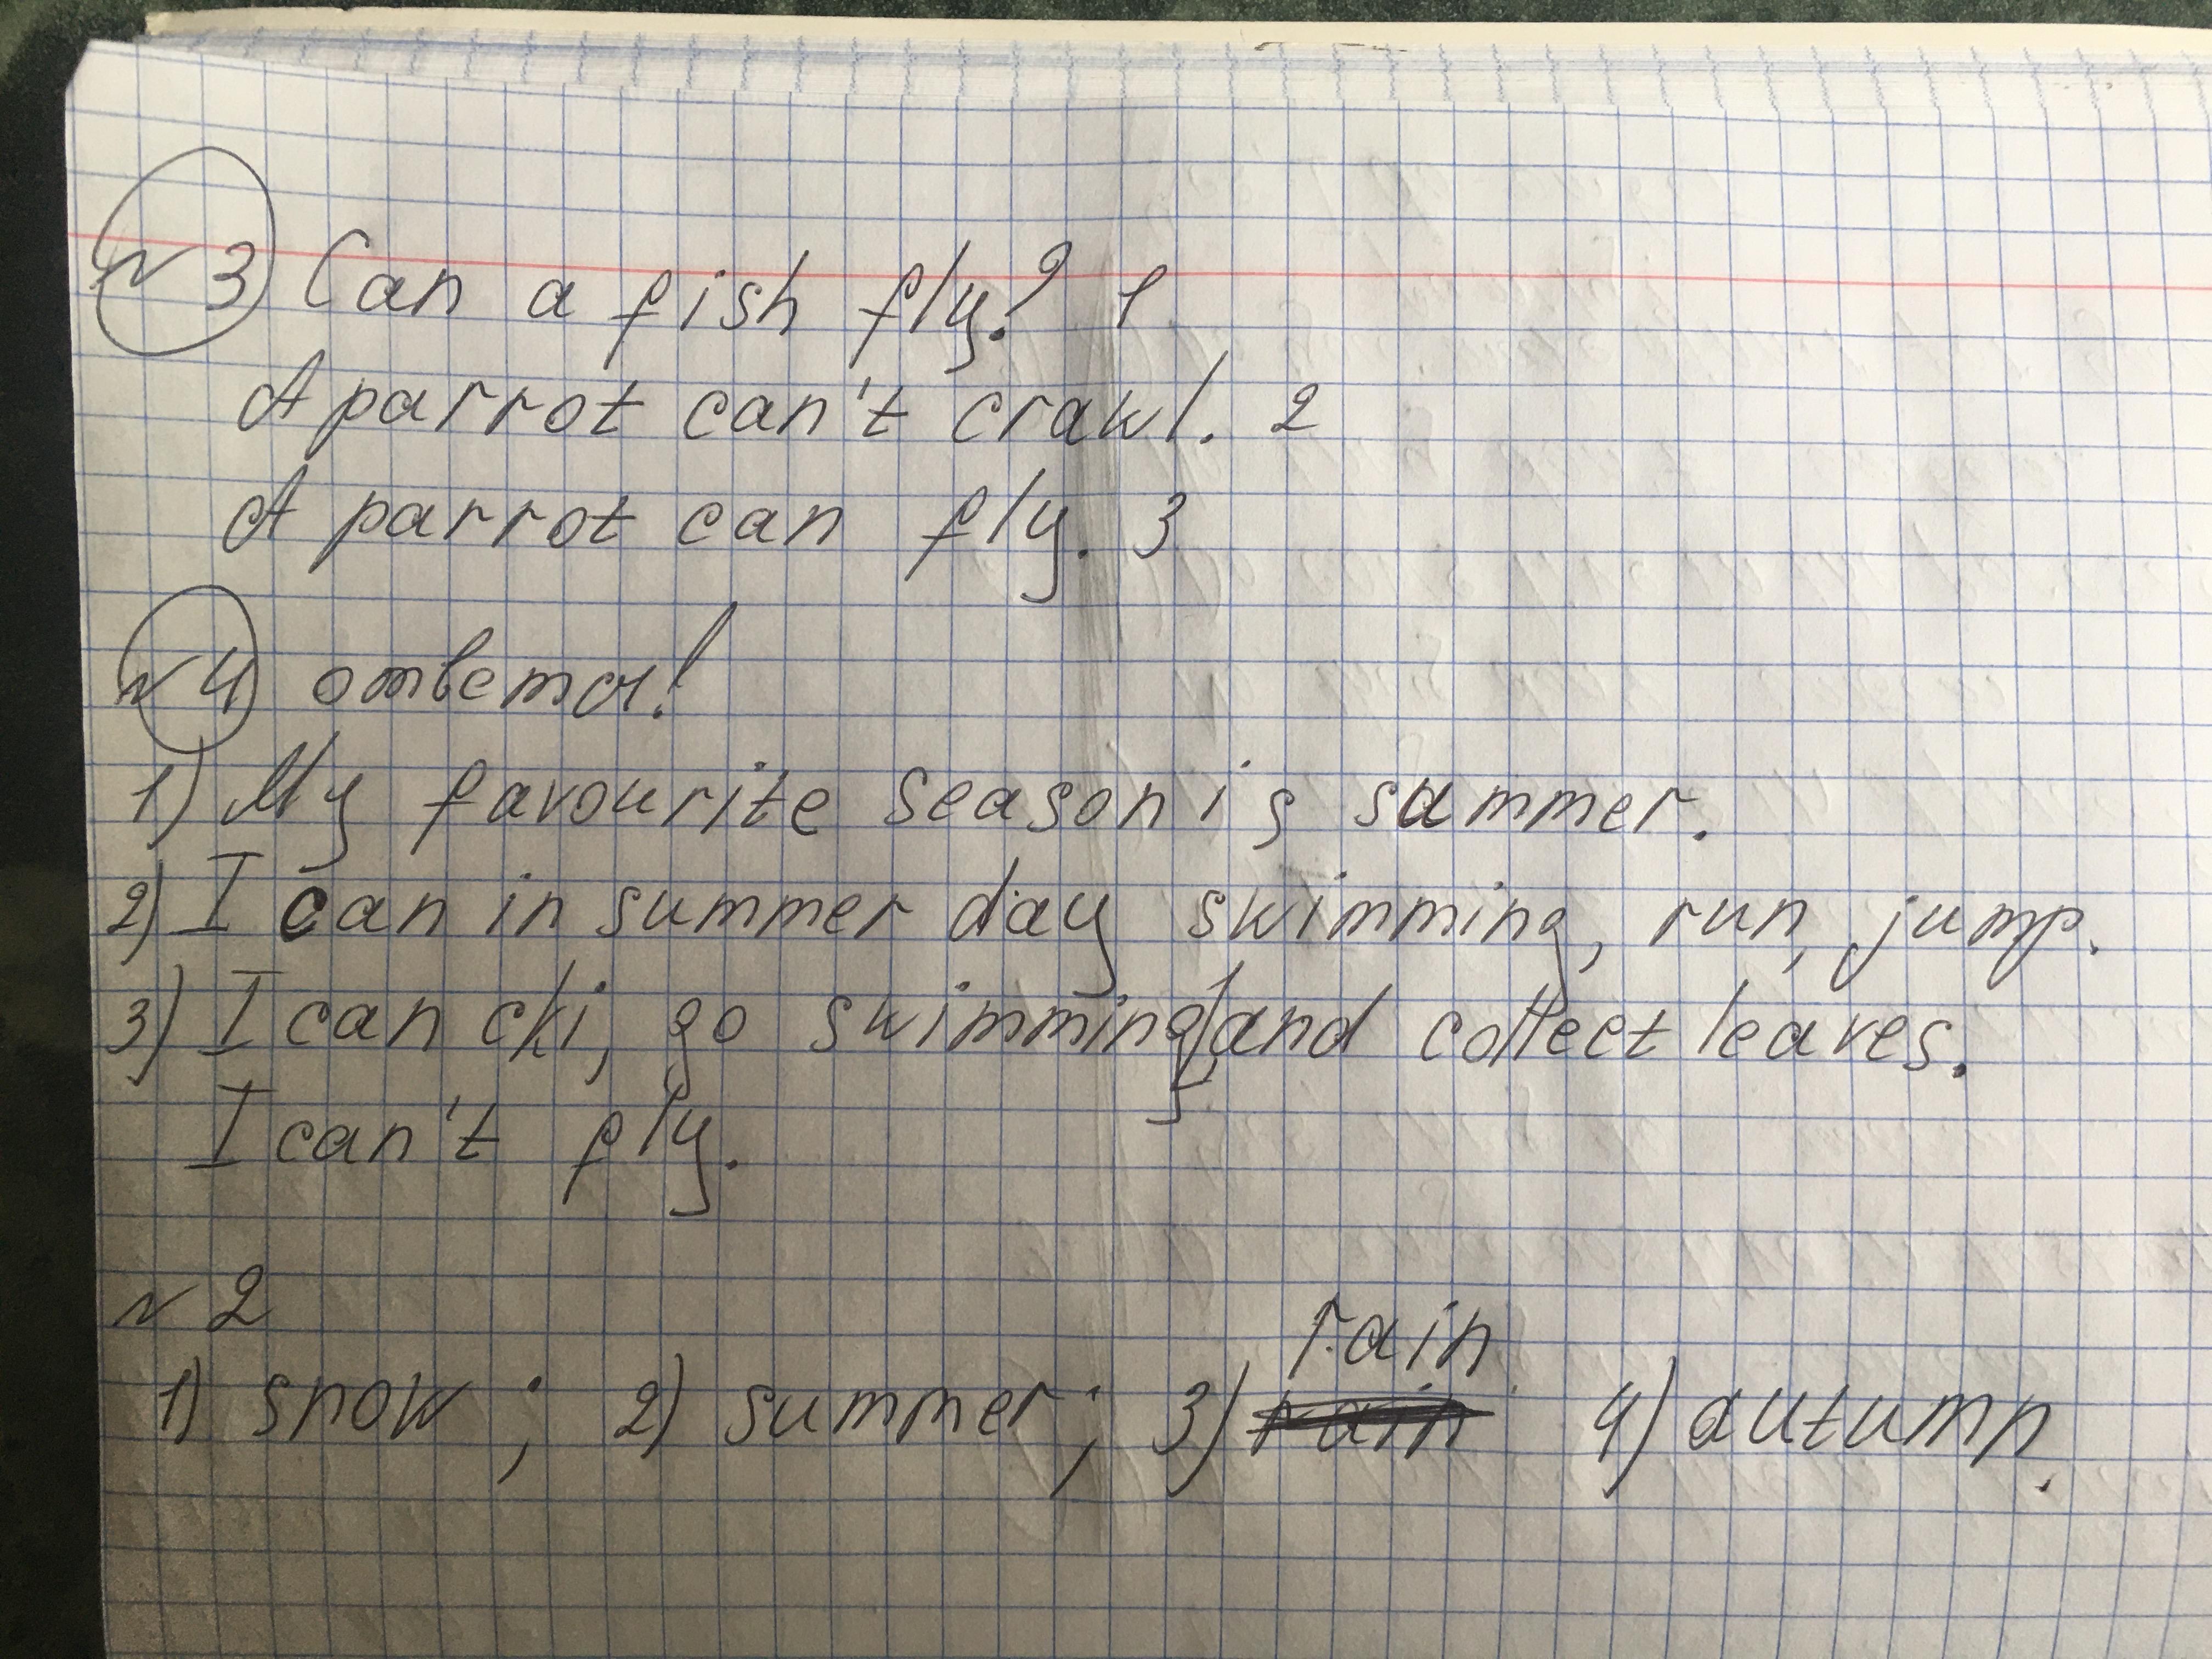 №3 Can a fish fly? 1
A parrot can't crawl. 2
A parrot can fly. 3
№4 ответы!
1) My favourite season is summer.
2) I can in summer day swimming, run, jump.
3) I can cki, go swimming, and collect leaves.
I can't fly.
№2
rain
1) snow; 2) summer; 3) rain 4) autumn.